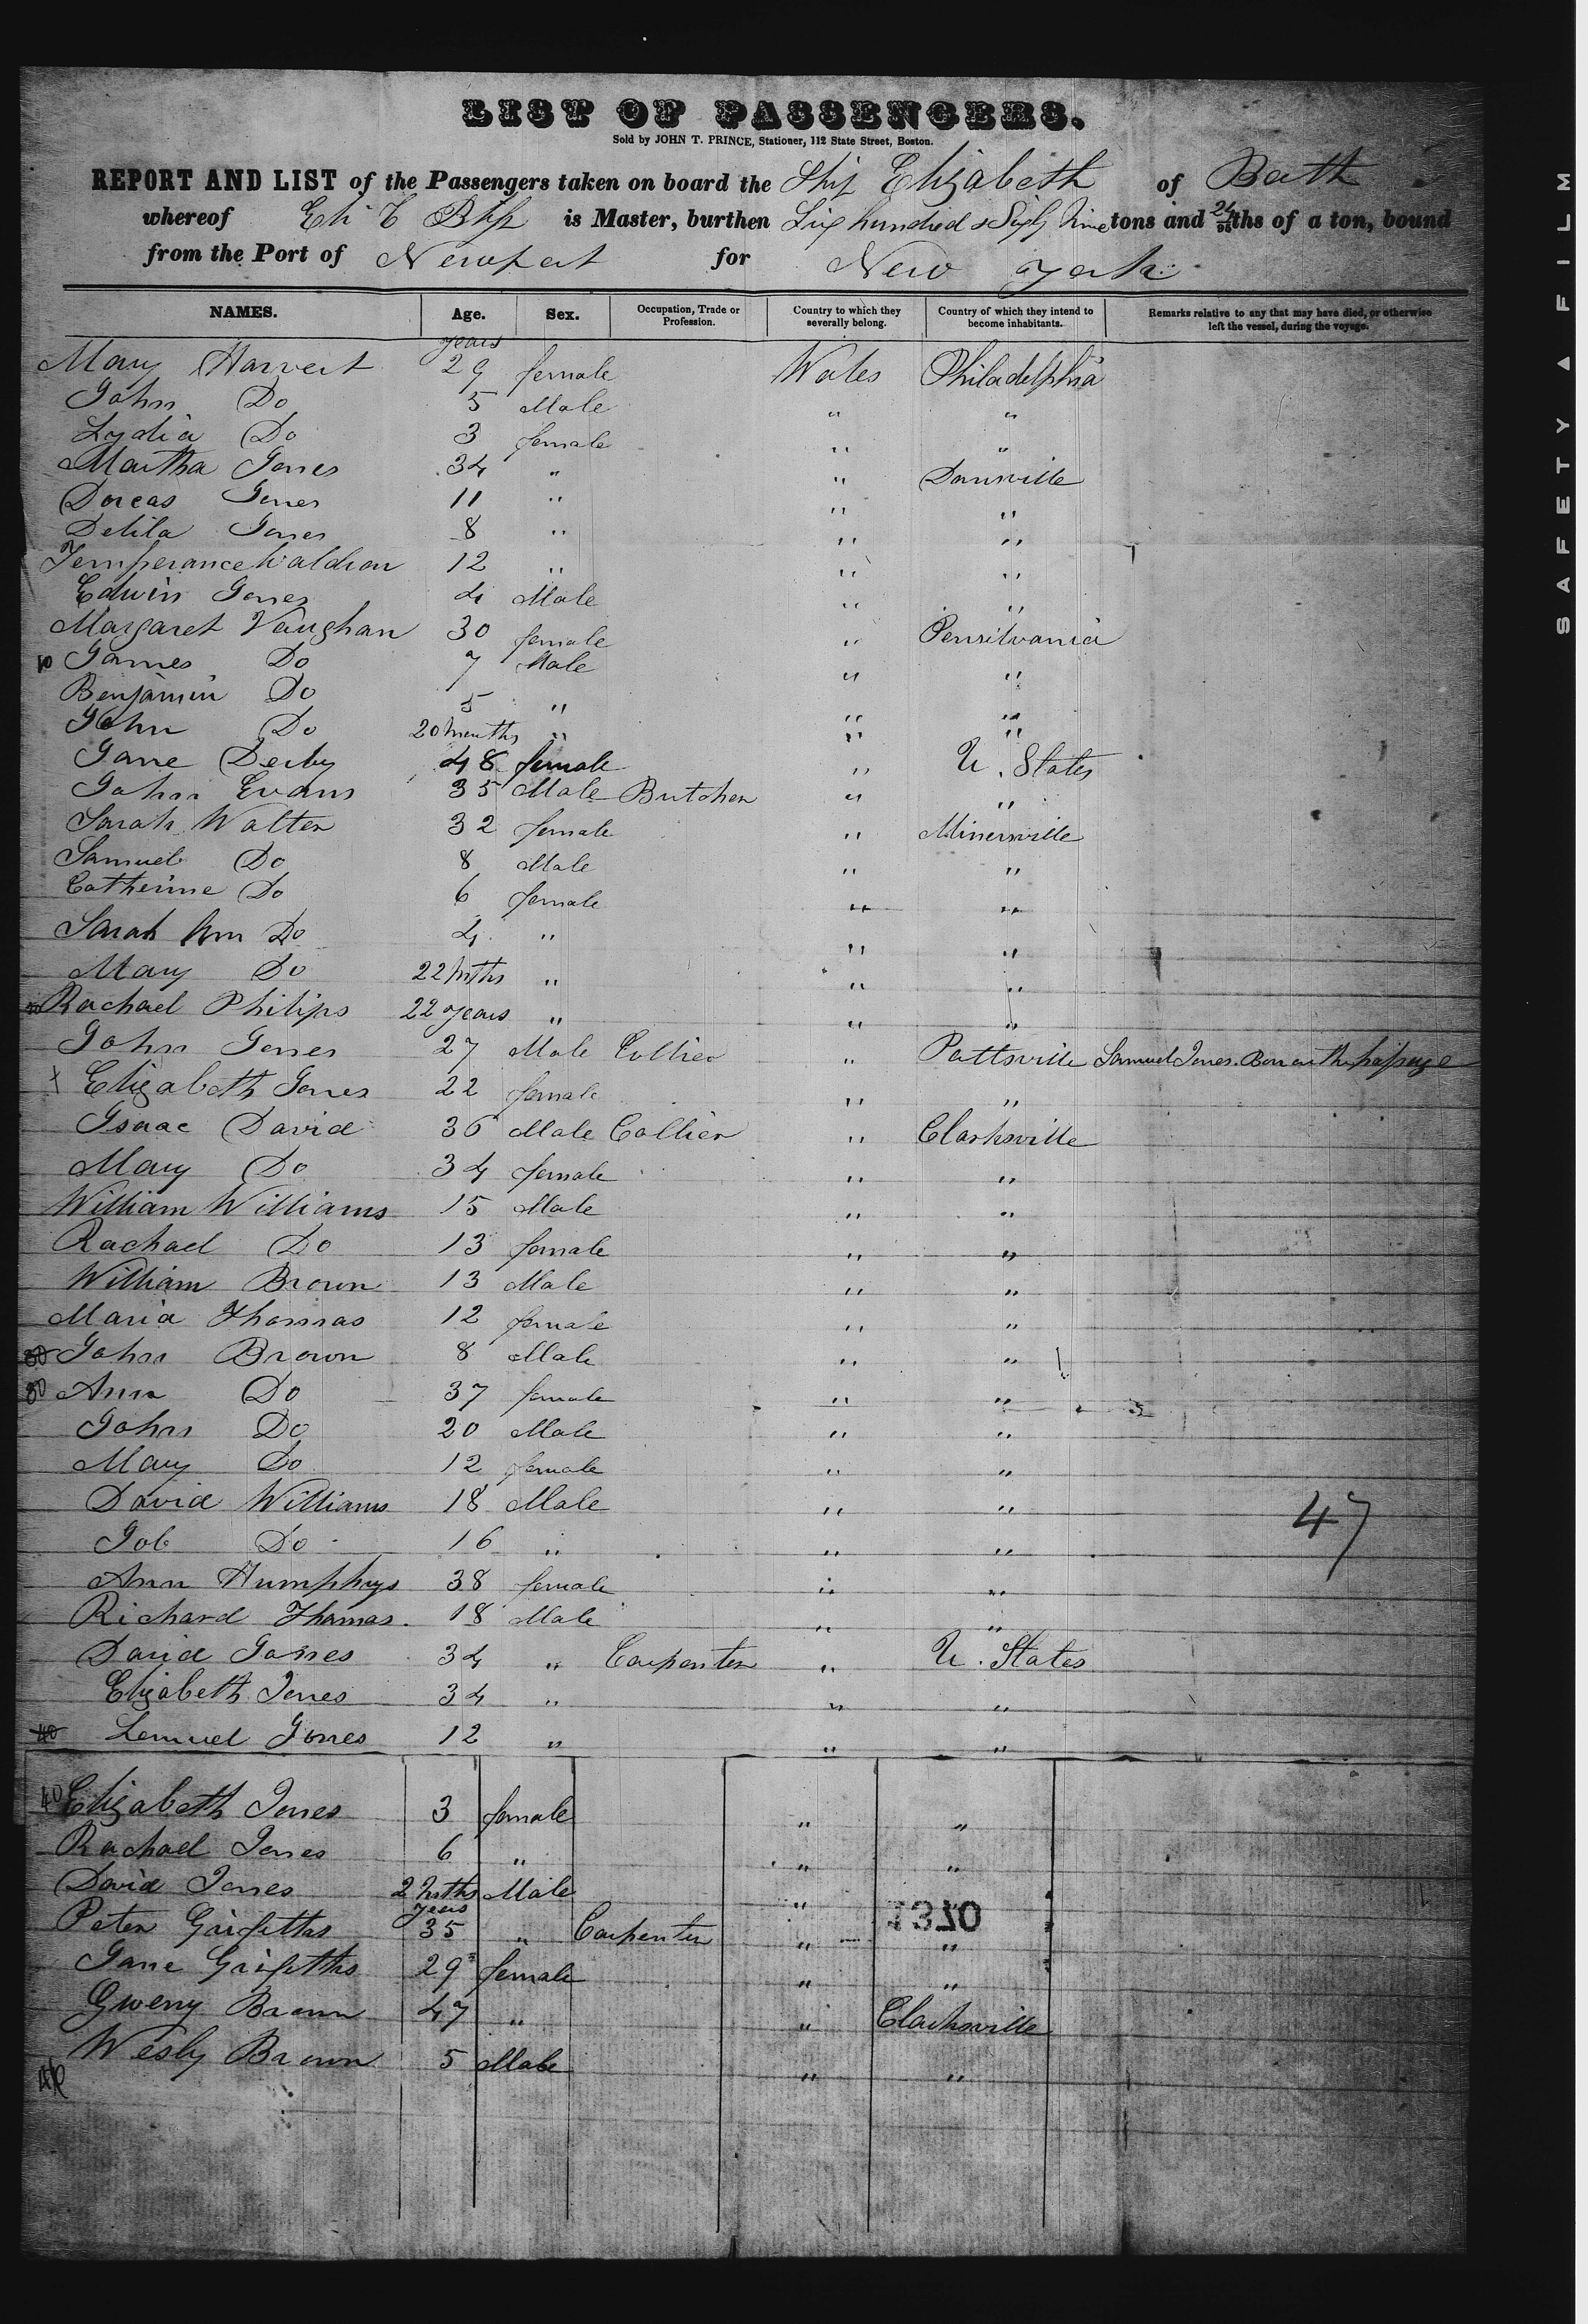 LIST OF PASSENGERS.
Sold by JOHN T. PRINCE, Stationer, 112 State Street, Boston.
REPORT AND LIST of the Passengers taken on board the Ship Elizabeth of Bath
whereof Eli is Master, burthen Six hundred & Sixty Nine tons and 24/95ths of a ton, bound
from the Port of Newport for New York
NAMES. Age. Sex. Occupation, Trade or Profession. Country to which they severally belong. Country of which they intend to become inhabitants. Remarks relative to any that may have died, or otherwise left the vessel, during the voyage.
years
Mary Harvert 29 female Wales Philadelphia
John Do 5 Male " "
Lydia Do 3 female " "
Martha Jones 34 " " Danville
Dorcas Jones 11 " " "
Delila Jones 8 " " "
Temperance Waldron 12 " " "
Edwin Jones 4 Male " "
Margaret Vaughan 30 female " Pensilvania
10 James Do 7 Male " "
Benjamin Do 5 " " "
John Do 20 months " " "
Jane Derby 48 female " U. States
John Evans 35 Male Butcher " "
Sarah Walter 32 female " Minersville
Samuel Do 8 Male " "
Catherine Do 6 female " "
Sarah Ann Do 4 " " "
Mary Do 22 mths " " "
20 Rachael Philips 22 years " " "
John Jones 27 Male Collier " Pottsville Samuel Jones. Born on the passage
x Elizabeth Jones 22 female " "
Isaac David 36 Male Collier " Clarksville
Mary Do 34 female " "
William Williams 15 Male " "
Rachael Do 13 female " "
William Brown 13 Male " "
Maria Thomas 12 female " "
30 John Brown 8 Male " "
30 Ann Do 37 female " "
John Do 20 Male " "
Mary Do 12 female " "
David Williams 18 Male " "
47
Job Do 16 " " "
Ann Humphrys 38 female " "
Richard Thomas. 18 Male " "
David Jones 34 " Carpenter " U. States
Elizabeth Jones 34 " " "
40 Lemuel Jones 12 " " "
40 Elizabeth Jones 3 female " "
Rachael Jones 6 " " "
David Jones 2 mths Male "
years
1370
Peter Griffiths 35 " Carpenter " "
Jane Griffiths 29 female " "
Gweny Brown 47 " " Clarksville
Wesly Brown 5 Male " "
SAFETY ▲ FILM